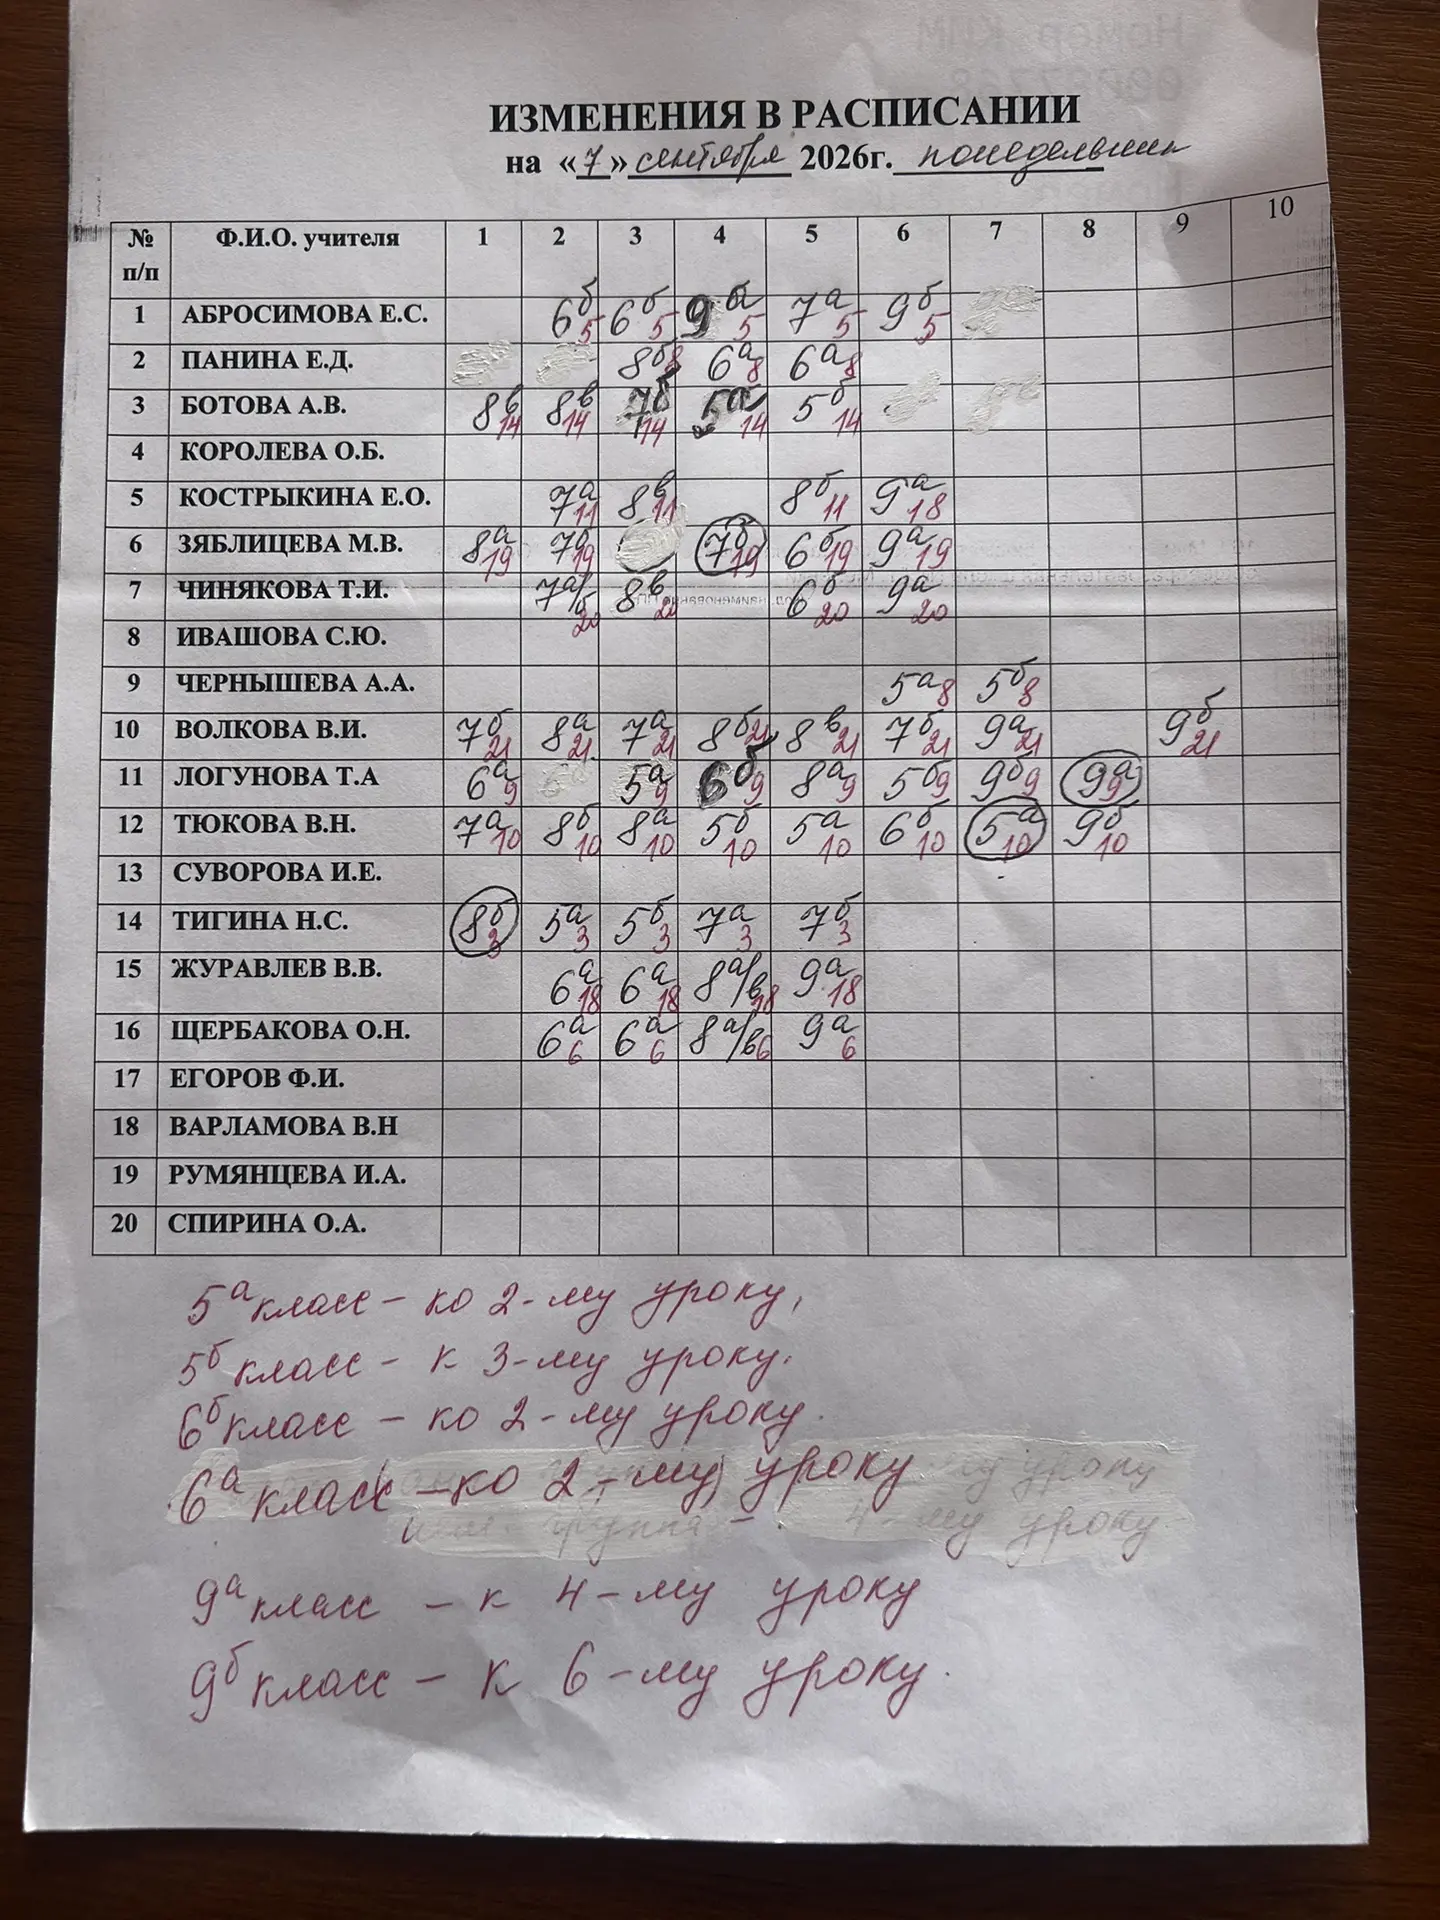 ИЗМЕНЕНИЯ В РАСПИСАНИИ
на «7» сентября 2026г. понедельник
№ п/п Ф.И.О. учителя 1 2 3 4 5 6 7 8 9 10
1 АБРОСИМОВА Е.С. 6б 5 6б 5 9б 5 7а 5 9б 5
2 ПАНИНА Е.Д. 8б 8 6а 8 6а 8
3 БОТОВА А.В. 8в 14 8в 14 7б 14 5а 14 5б 14
4 КОРОЛЕВА О.Б.
5 КОСТРЫКИНА Е.О. 7а 11 8в 11 8б 11 9а 18
6 ЗЯБЛИЦЕВА М.В. 8а 19 7б 19 7б 19 6б 19 9а 19
7 ЧИНЯКОВА Т.И. 7а/б 20 8в 20 6б 20 9а 20
8 ИВАШОВА С.Ю.
9 ЧЕРНЫШЕВА А.А. 5а 8 5б 8
10 ВОЛКОВА В.И. 7б 21 8а 21 7а 21 8б 21 8в 21 7б 21 9а 21 9б 21
11 ЛОГУНОВА Т.А 6а 9 5а 9 6б 9 8а 9 5б 9 9б 9 9а 9
12 ТЮКОВА В.Н. 7а 10 8б 10 8а 10 5б 10 5а 10 6б 10 5а 10 9б 10
13 СУВОРОВА И.Е.
14 ТИГИНА Н.С. 8б 3 5а 3 5б 3 7а 3 7б 3
15 ЖУРАВЛЕВ В.В. 6а 18 6а 18 8а/в 18 9а 18
16 ЩЕРБАКОВА О.Н. 6а 6 6а 6 8а/в 6 9а 6
17 ЕГОРОВ Ф.И.
18 ВАРЛАМОВА В.Н
19 РУМЯНЦЕВА И.А.
20 СПИРИНА О.А.
5а класс – ко 2-му уроку,
5б класс – к 3-му уроку.
6б класс – ко 2-му уроку.
6а класс – ко 2-му уроку
9а класс – к 4-му уроку
9б класс – к 6-му уроку.